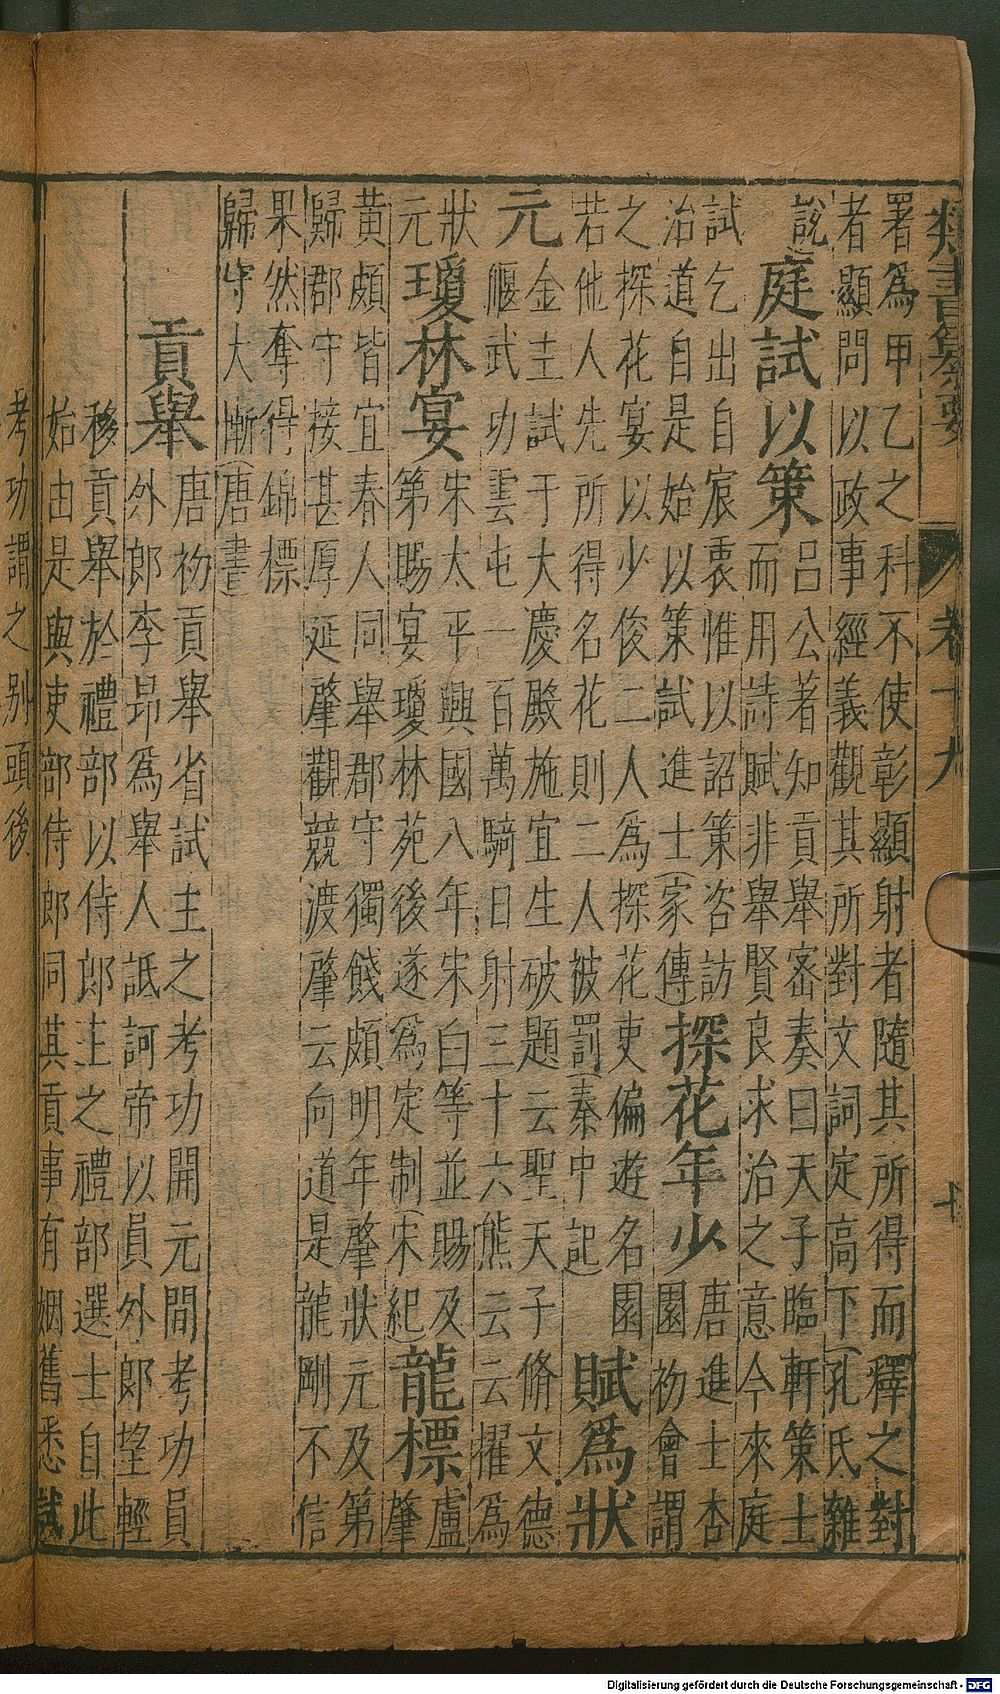 類書纂要 卷十九 七
署為甲乙之科不使彰顯射者隨其所得而釋之對
者顯問以政事經義觀其所對文詞定高下(孔氏雜
說 庭試以策 呂公著知貢舉密奏曰天子臨軒策士
而用詩賦非舉賢良求治之意今來庭
試乞出自宸衷惟以詔策咨訪
治道自是始以策試進士(家傳) 探花年少 唐進士杏
園初會謂
之探花宴以少俊二人為探花吏偏遊名園
若他人先所得名花則二人被罰(秦中記) 賦為狀
元 金主試于大慶殿施宜生破題云聖天子脩文德
偃武功雲屯一百萬騎日射三十六熊云云擢為
狀
元 瓊林宴 宋太平興國八年宋白等並賜及
第賜宴瓊林苑後遂為定制(宋紀) 龍標 盧
肇
黃頗皆宜春人同舉郡守獨餞頗明年肇狀元及第
歸郡守接甚厚延肇觀競渡肇云向道是龍剛不信
果然奪得錦標
歸守大慚(唐書
貢舉 唐初貢舉省試主之考功開元間考功員
外郎李昂為舉人詆訶帝以員外郎望輕
移貢舉於禮部以侍郎主之禮部選士自此
始由是與吏部侍郎同其貢事有姻舊悉試
考功謂之別頭後
Digitalisierung gefördert durch die Deutsche Forschungsgemeinschaft - DFG